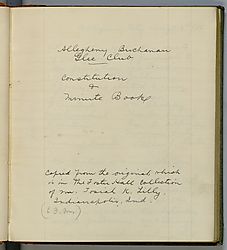 Allegheny Buchanan
Glee Club
Constitution
&
Minute Book
Copied from the original which
is in The Foster Hall Collection
of Mr. Josiah K. Lilly,
Indianapolis, Ind.